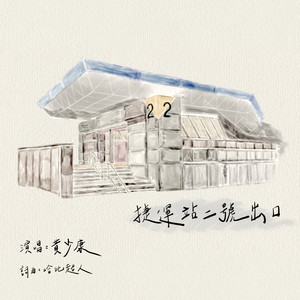 2 2
捷運站二號出口
演唱：黃少康
詞曲：哈比超人